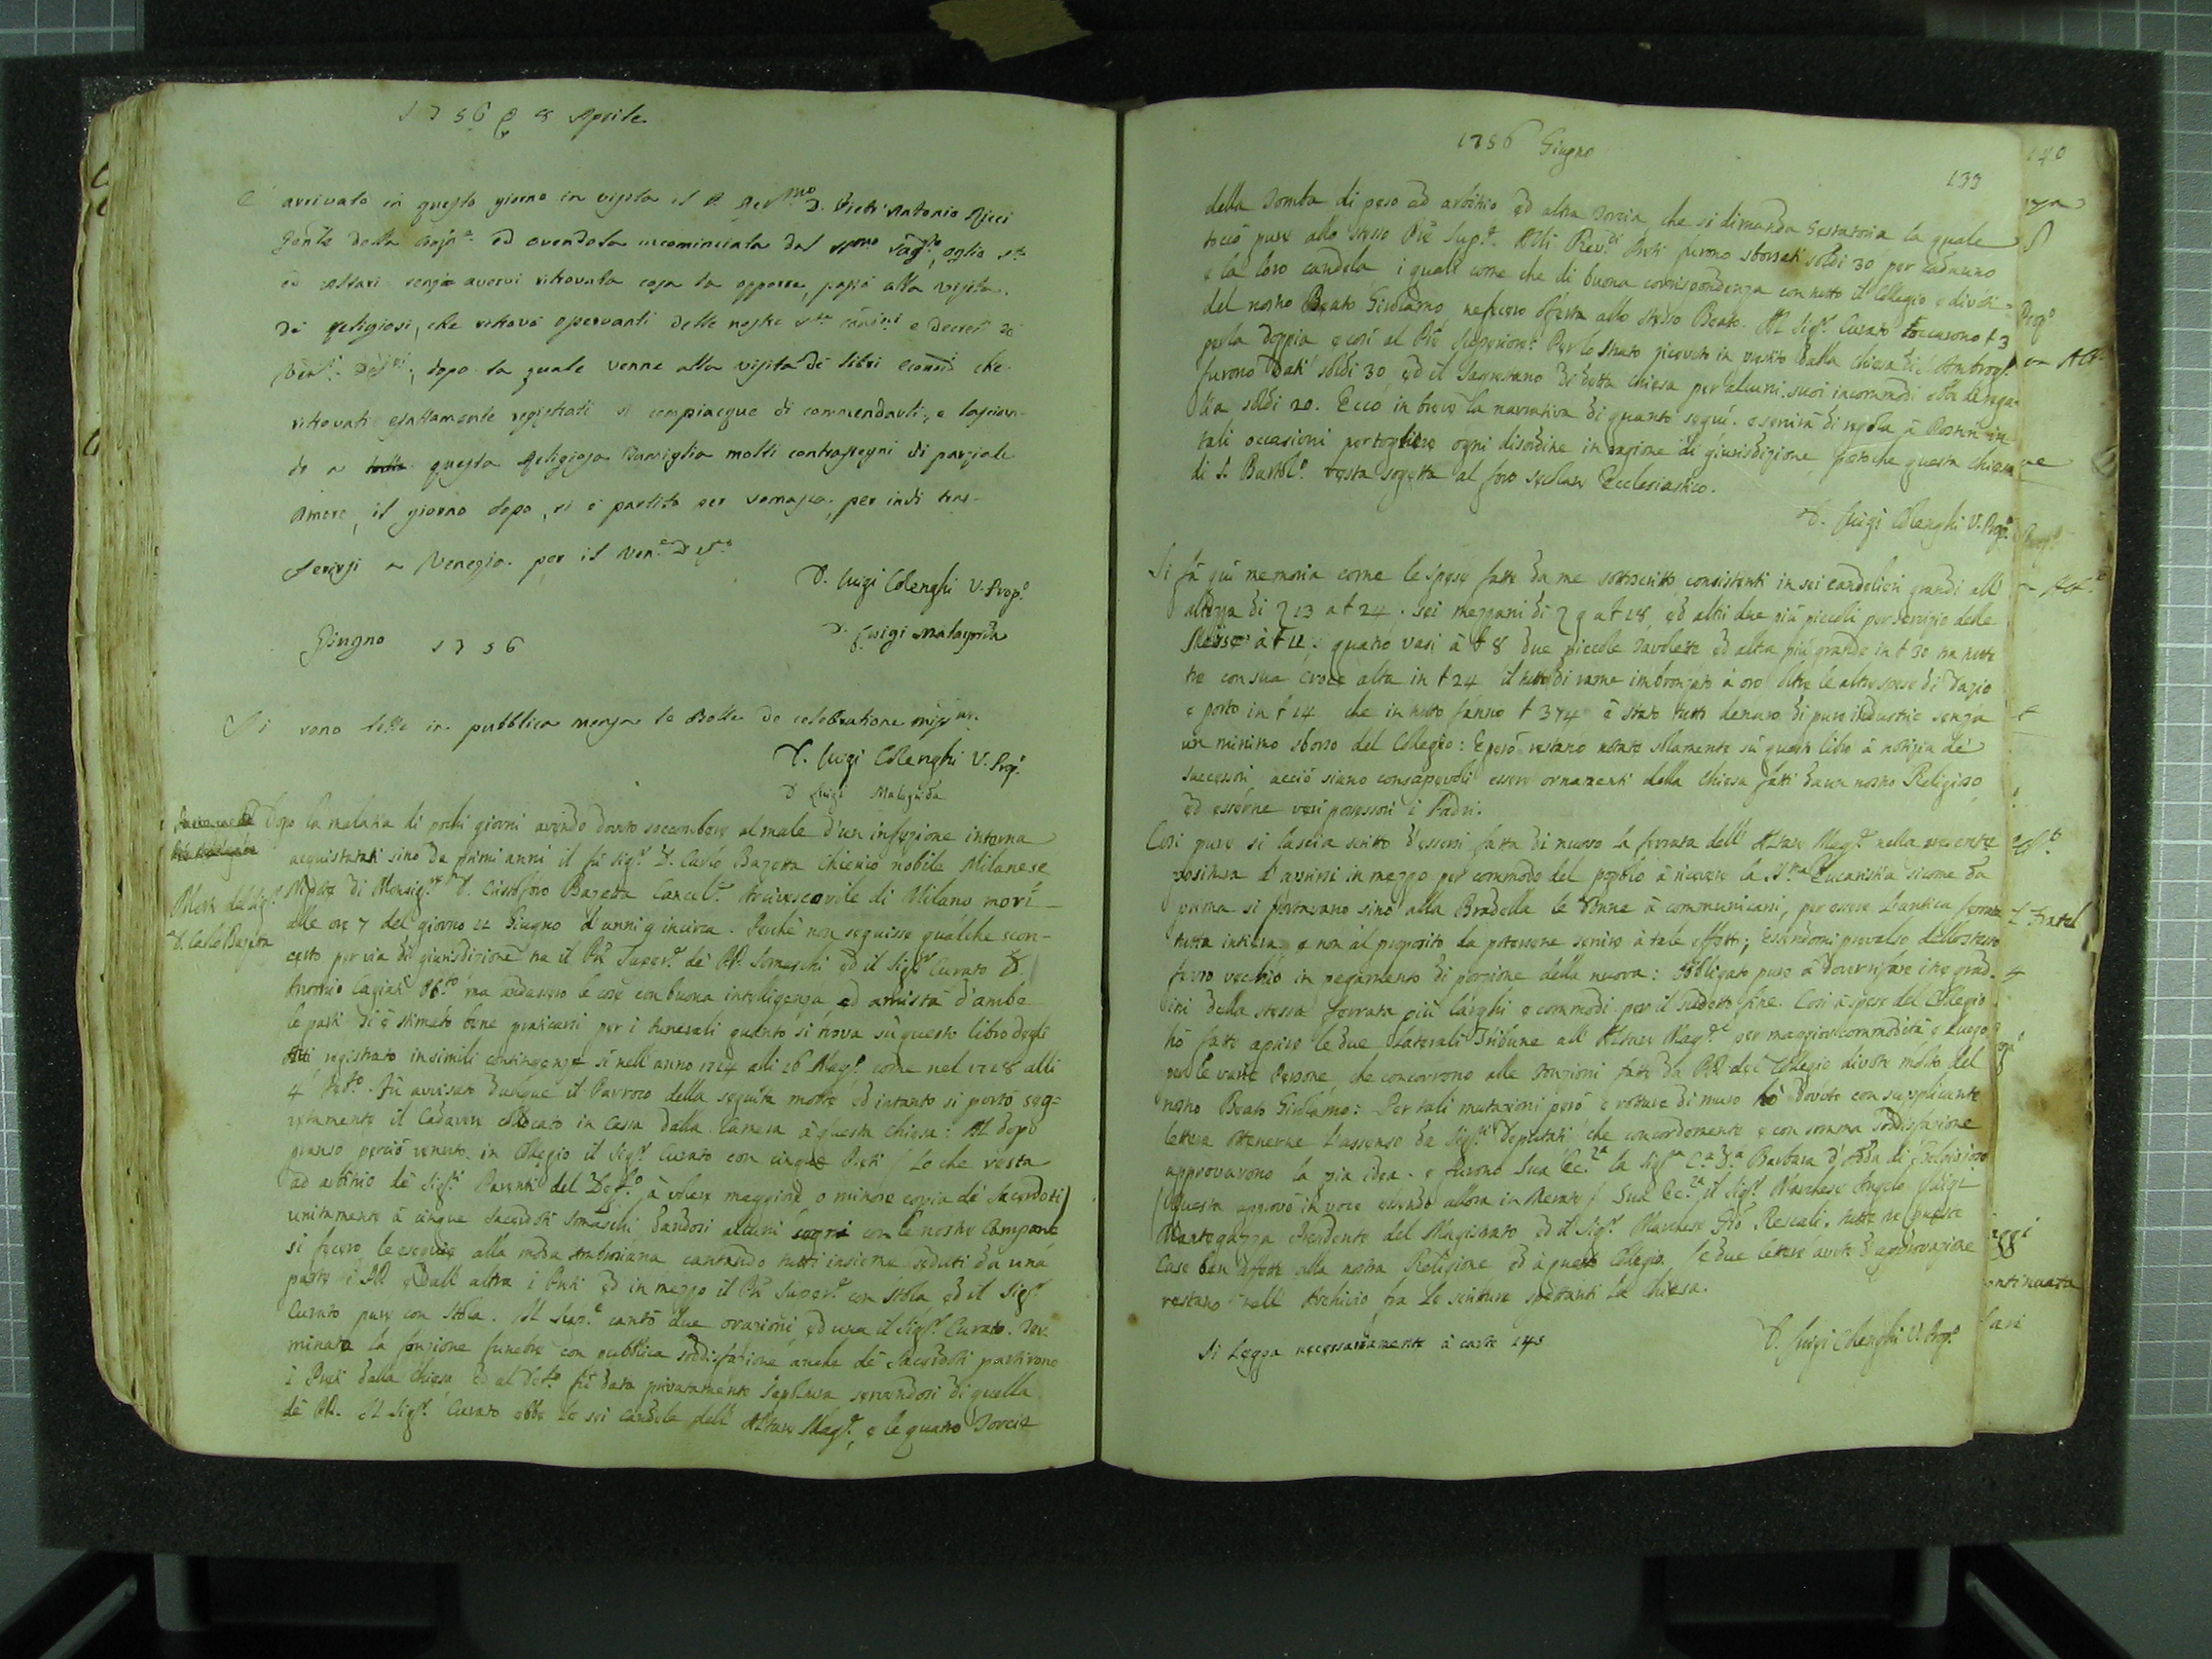 1756 8 Aprile
È arrivato in questo giorno in visita il P. Rev.mo D. Pietr'Antonio Ricci
Gente della ed avendola incominciata dal oglio s.to
ed Altari senza avervi ritrovata cosa da opporre, passò alla visita
de' Religiosi, che ritrovò osservanti delle nostre e decreti de'
dopo la quale venne alla visita de' libri che
ritrovati esattamente registrati si compiacque di commendarli, e lascian-
do a questa Religiosa Famiglia molti contrassegni di parziale
Amore, il giorno dopo, si è partito per Somasca, per indi tras-
ferirsi a Venezia per il Ven.
D. Luigi Colenghi V. Prep.o
D. Luigi Malagrida
Giugno 1756
Si sono lette in pubblica mensa le Bolle de celebratione miss.
D. Luigi Colenghi V. Prep.o
D. Luigi Malagrida
Morte del Sig.r
D. Carlo Bazetta
Dopo la malatia di pochi giorni avendo dovuto soccombere al male d'un infezione interna
acquistatasi sino da primi anni il fù Sig.r D. Carlo Bazetta Chierico nobile Milanese
Nipote di Monsig.r D. Cristoforo Bazetta Cancel.e Arcivescovile di Milano morì
alle ore 7 del giorno 22 Giugno d'anni 9 incirca. Perchè non seguisse qualche scon-
certo per via di giurisdizione tra il P.re Super.e de' PP. Somaschi ed il Sig.r Curato D.
Antonio Cagiati ma andassero le cose con buona intelligenza ed amistà d'ambe
le parti si è stimato bene praticarsi per i funerali quanto si trova sù questo libro degli
Atti registrato in simili contingenze sì nell'anno 1724 alli 26 Mag.o come nel 1728 alli
4 Fù avvisato dunque il Parroco della seguita morte ed intanto si portò seg-
retamente il Cadavere collocato in Cassa dalla Camera à questa Chiesa: Al dopo
pranso perciò venuto in Collegio il Sig.r Curato con cinque Preti / Lo che resta
ad arbitrio de' Sig.ri Parenti del Def.to à volere maggiore o minore copia de' Sacerdoti /
unitamente à cinque Sacerdoti Somaschi dandosi alcuni segni con le nostre Campane
si fecero le esequie alla moda Ambrosiana cantando tutti insieme seduti da una
parte i PP. e dall'altra i Preti ed in mezzo il P.re Super.e con stola ed il Sig.r
Curato pure con Stola. Il Sup.e cantò due orazioni ed una il Sig.r Curato. Ter-
minata la fonzione funebre con pubblica soddisfazione anche de' Sacerdoti partirono
i Preti dalla Chiesa ed al Def.to fù data privatamente sepoltura servendosi di quella
de' PP. Il Sig.r Curato ebbe le sei candele dell'Altare Mag.e, e le quatro Torcie
1756 Giugno
133
della Tomba di peso ad arbitrio ed altra Torcia che si dimanda la quale
toccò pure allo stesso P.re Sup.e. Alli Rev.di Preti furono sborsati soldi 30 per cadauno
e la loro candela i quali come che di buona corrispondenza con tutto il Collegio e divoti
del nostro Beato Girolamo ne fecero offerta allo stesso Beato. Al Sig.r Curato toccarono £ 3
per la doppia e così al P.re Superiore: Per lo strato ricevuto in prestito dalla Chiesa di S. Ambrog.o
furono dati soldi 30, ed il Sagrestano di detta Chiesa per alcuni suoi incomodi
soldi 20. Ecco in breve la narrativa di quanto seguì, e servirà di regola à Posteri in
tali occasioni per togliere ogni disordine in ragione di giurisdizione, perchè questa Chiesa
di S. Bartol.o resta sogetta al foro secolare Ecclesiastico.
D. Luigi Colenghi V. Prep.o
Si fà quì memoria come le spese fatte da me sottoscritto consistenti in sei candelieri grandi all'
altezza di 13 a £ 24. sei mezzani di 9 a £ 18, ed altri due più piccoli per servizio delle
Messe à £ 12. quatro vasi à £ 8 due piccole Tavolette ed altra più grande in £ 30 tra tutte
tre con sua Croce alta in £ 24 il tutto di rame imbronzato à oro oltre le altre spese di Dazio
e porto in £ 14 che in tutto fanno £ 374 è stato tutto denaro di pure industrie senza
un minimo sborso del Collegio: E però restano notate solamente sù questo libro à notizia de'
successori acciò siano consapevoli essere ornamenti della Chiesa fatti da un nostro Religioso
ed esserne veri possessori i Padri.
Così pure si lascia scritto d'essersi fatta di nuovo la ferrata dell'Altare Mag.e nella presente
positura d'aprirsi in mezzo per commodo del popolo à ricevere la SS.ma Eucaristia sicome da
prima si portavano sino alla Bradella le Donne à communicarsi, per essere l'antica ferrata
tutta intiera e non al proposito da potersene servire à tale effetto; essendomi prevalso dello stesso
ferro vecchio in pagamento di porzione della nuova: obbligato pure à dover rifare i tre grad-
ini della stessa ferrata più larghi e commodi per il suddetto fine. Così à spese del Collegio
hò fatto aprire le due laterali Tribune all'Altare Mag.e per maggior commodità e luogo
per le varie Persone che concorrono alle fonzioni fatte da PP. del Collegio divote molto del
nostro Beato Girolamo: Per tali mutazioni però e rotture di muro hò dovuto con supplicante
lettera ottenerne l'assenso da Sig.ri Deputati che concordemente e con somma soddisfazione
approvarono la pia idea. e furono Sua Ec.za la Sig.ra C.a D.a Barbara d'Adda di Belgioioso
/ questa approvò in voce essendo allora in Merate / Sua Ec.za il Sig.r Marchese Angelo Luigi
Mantegazza Presidente del Magistrato ed il Sig.r Marchese Giò Rescali. tutte tre queste
Case ben affette alla nostra Religione ed à questo Collegio. Le due lettere avute d'approvazione
restano nell'Archivio fra le scritture spettanti la Chiesa.
D. Luigi Colenghi V. Prep.o
Si Legga necessariamente à carte 145
140